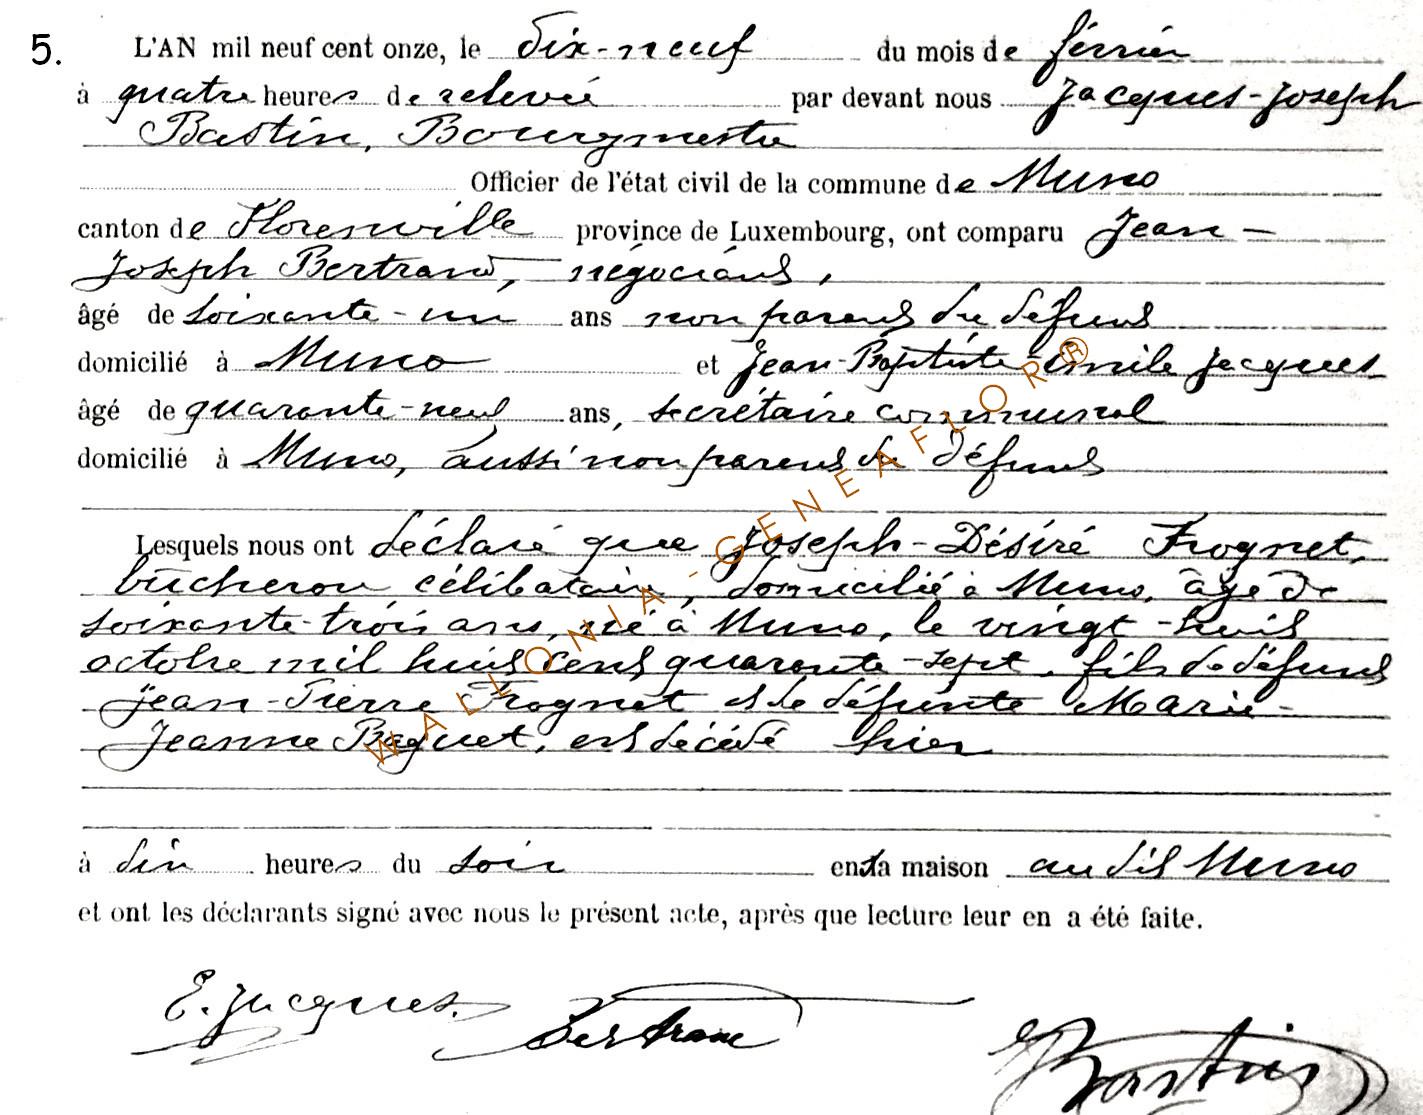 5. L'AN mil neuf cent onze, le dix-neuf du mois de février
à quatre heures de relevée par devant nous Jacques-Joseph
Bastin, Bourgmestre
Officier de l'état civil de la commune de Muno
canton de Florenville province de Luxembourg, ont comparu Jean-
Joseph Bertrand, négociant,
âgé de soixante-un ans non parent du défunt
domicilié à Muno et Jean-Baptiste Emile Jacques
âgé de quarante-neuf ans, secrétaire communal
domicilié à Muno, aussi non parent du défunt
Lesquels nous ont déclaré que Joseph-Désiré Frognet,
bûcheron célibataire, domicilié à Muno, âgé de
soixante-trois ans, né à Muno, le vingt-huit
octobre mil huit cent quarante-sept, fils de défunt
Jean-Pierre Frognet et de défunte Marie-
Jeanne Baquet, est décédé hier
à dix heures du soir en sa maison au dit Muno
et ont les déclarants signé avec nous le présent acte, après que lecture leur en a été faite.
E. Jacques. Bertrand Bastin
WALLONIA-GENEAFLOR®